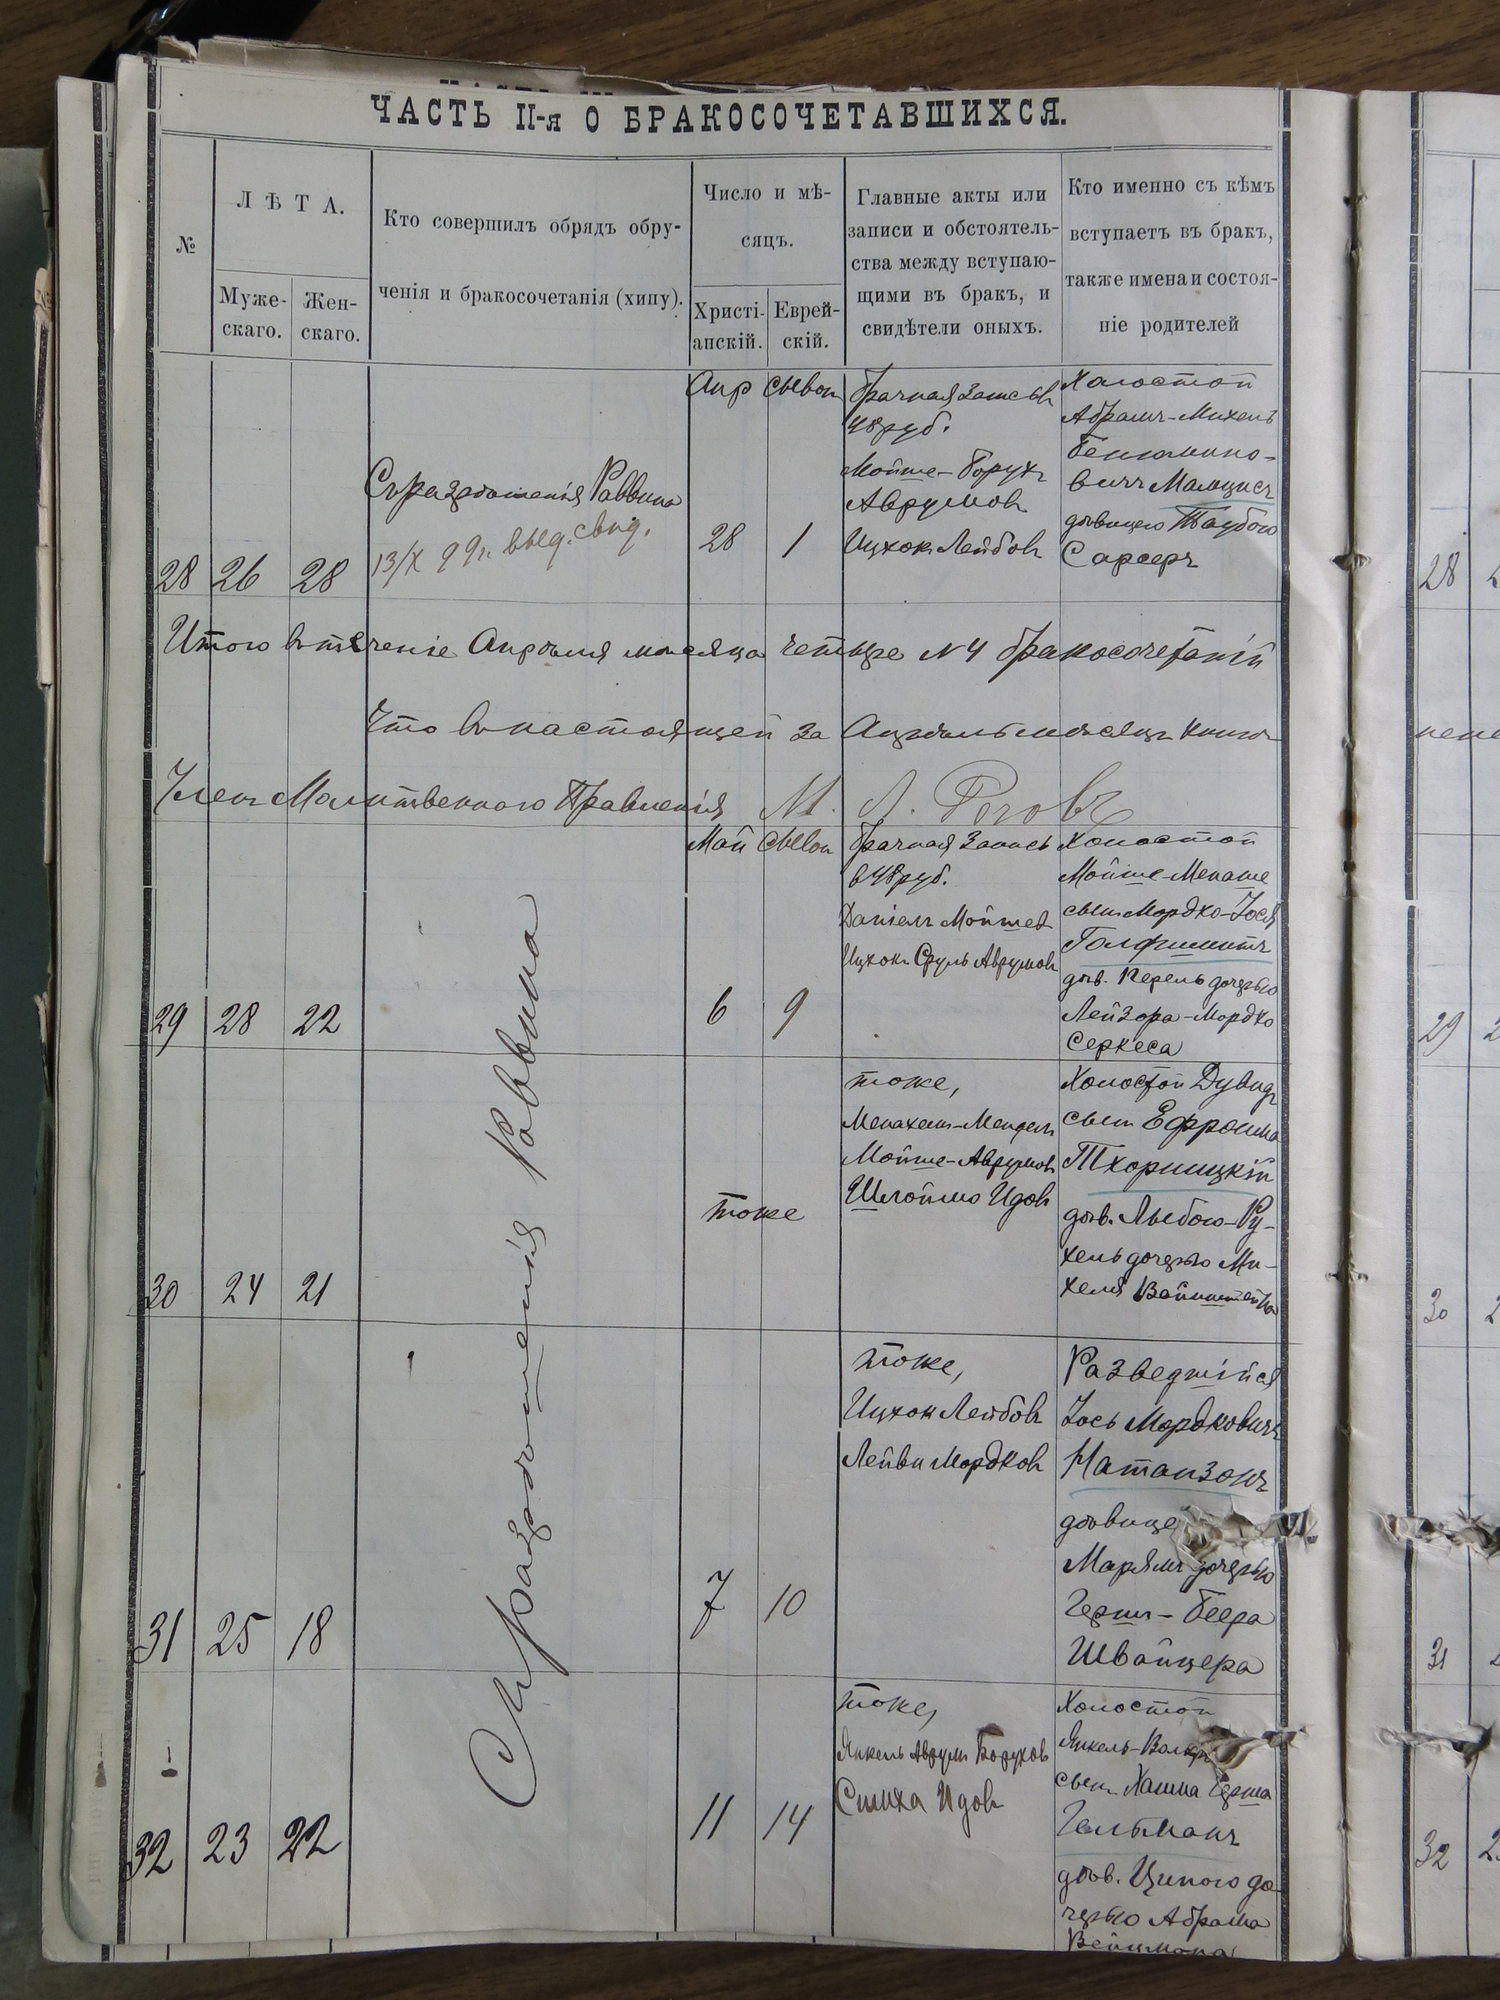 ЧАСТЬ II-я О БРАКОСОЧЕТАВШИХСЯ.
№
ЛѢТА.
Муже-
скаго.
Жен-
скаго.
Кто совершилъ обрядъ обру-
ченія и бракосочетанія (хипу).
Число и мѣ-
сяцъ.
Христі-
анскій.
Еврей-
скій.
Главные акты или
записи и обстоятель-
ства между вступаю-
щими въ бракъ, и
свидѣтели оныхъ.
Кто именно съ кѣмъ
вступаетъ въ бракъ,
также имена и состоя-
ніе родителей
28
26
28
Съ разрѣшенія Раввина
13/X 99г. выд. свид.
Апр
28
1
брачная запись
48 руб.
Мойше-Борухъ
Аврумов
Ицхок Лейбов
Холостой
Абрамъ-Михель
Беніамино-
вичъ
дѣвицею Таубою
Сарсеръ
Итого въ теченіе Апрѣля мѣсяца четыре №4 бракосочетаній
Что въ настоящей за Апрѣль мѣсяцъ книгѣ
Членъ Молитвенного Правленія М. Л. Роговъ
29
28
22
Съ разрѣшенія Раввина
Май
6
9
брачная запись
в 48 руб.
Даніелъ Мойшев
Ицхок Сруль Аврумов
Холостой
Мойше-Менаше
сынъ Мордко-Іося
дѣв. Перель дочерью
Лейзора-Мордко
Серкеса
30
24
21
тоже
тоже,
Менахем-Мендель
Мойше-Аврумов
Шлоймо Идов
Холостой Дувидъ
сынъ Ефроима
Тхорницкій
дѣв. Лыбою-Ру-
хель дочерью Ми-
хеля Вайнштейна
31
25
18
7
10
тоже,
Ицхок Лейбов
Лейви Мордков
Разведшійся
Іось Мордковичъ
Натанзонъ
дѣвице
Марямъ дочерью
Герш-Беера
Швайцера
32
23
22
11
14
тоже,
Янкель Аврум Борухов
Симха Идов
Холостой
Янкель-
сынъ Хаима Герша
Гельманъ
дѣв. Ципою до-
черью Абрама
Вейцмана
28
29
30
31
32